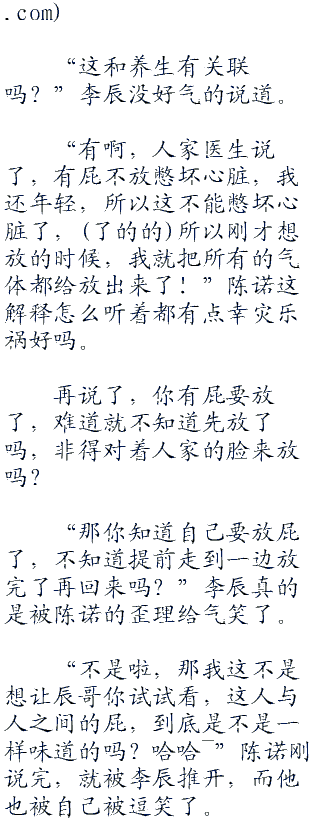 .com)
“这和养生有关联
吗？”李辰没好气的说道。
“有啊，人家医生说
了，有屁不放憋坏心脏，我
还年轻，所以这不能憋坏心
脏了，(了的的)所以刚才想
放的时候，我就把所有的气
体都给放出来了！”陈诺这
解释怎么听着都有点幸灾乐
祸好吗。
再说了，你有屁要放
了，难道就不知道先放了
吗，非得对着人家的脸来放
吗？
“那你知道自己要放屁
了，不知道提前走到一边放
完了再回来吗？”李辰真的
是被陈诺的歪理给气笑了。
“不是啦，那我这不是
想让辰哥你试试看，这人与
人之间的屁，到底是不是一
样味道的吗？哈哈~”陈诺刚
说完，就被李辰推开，而他
也被自己被逗笑了。